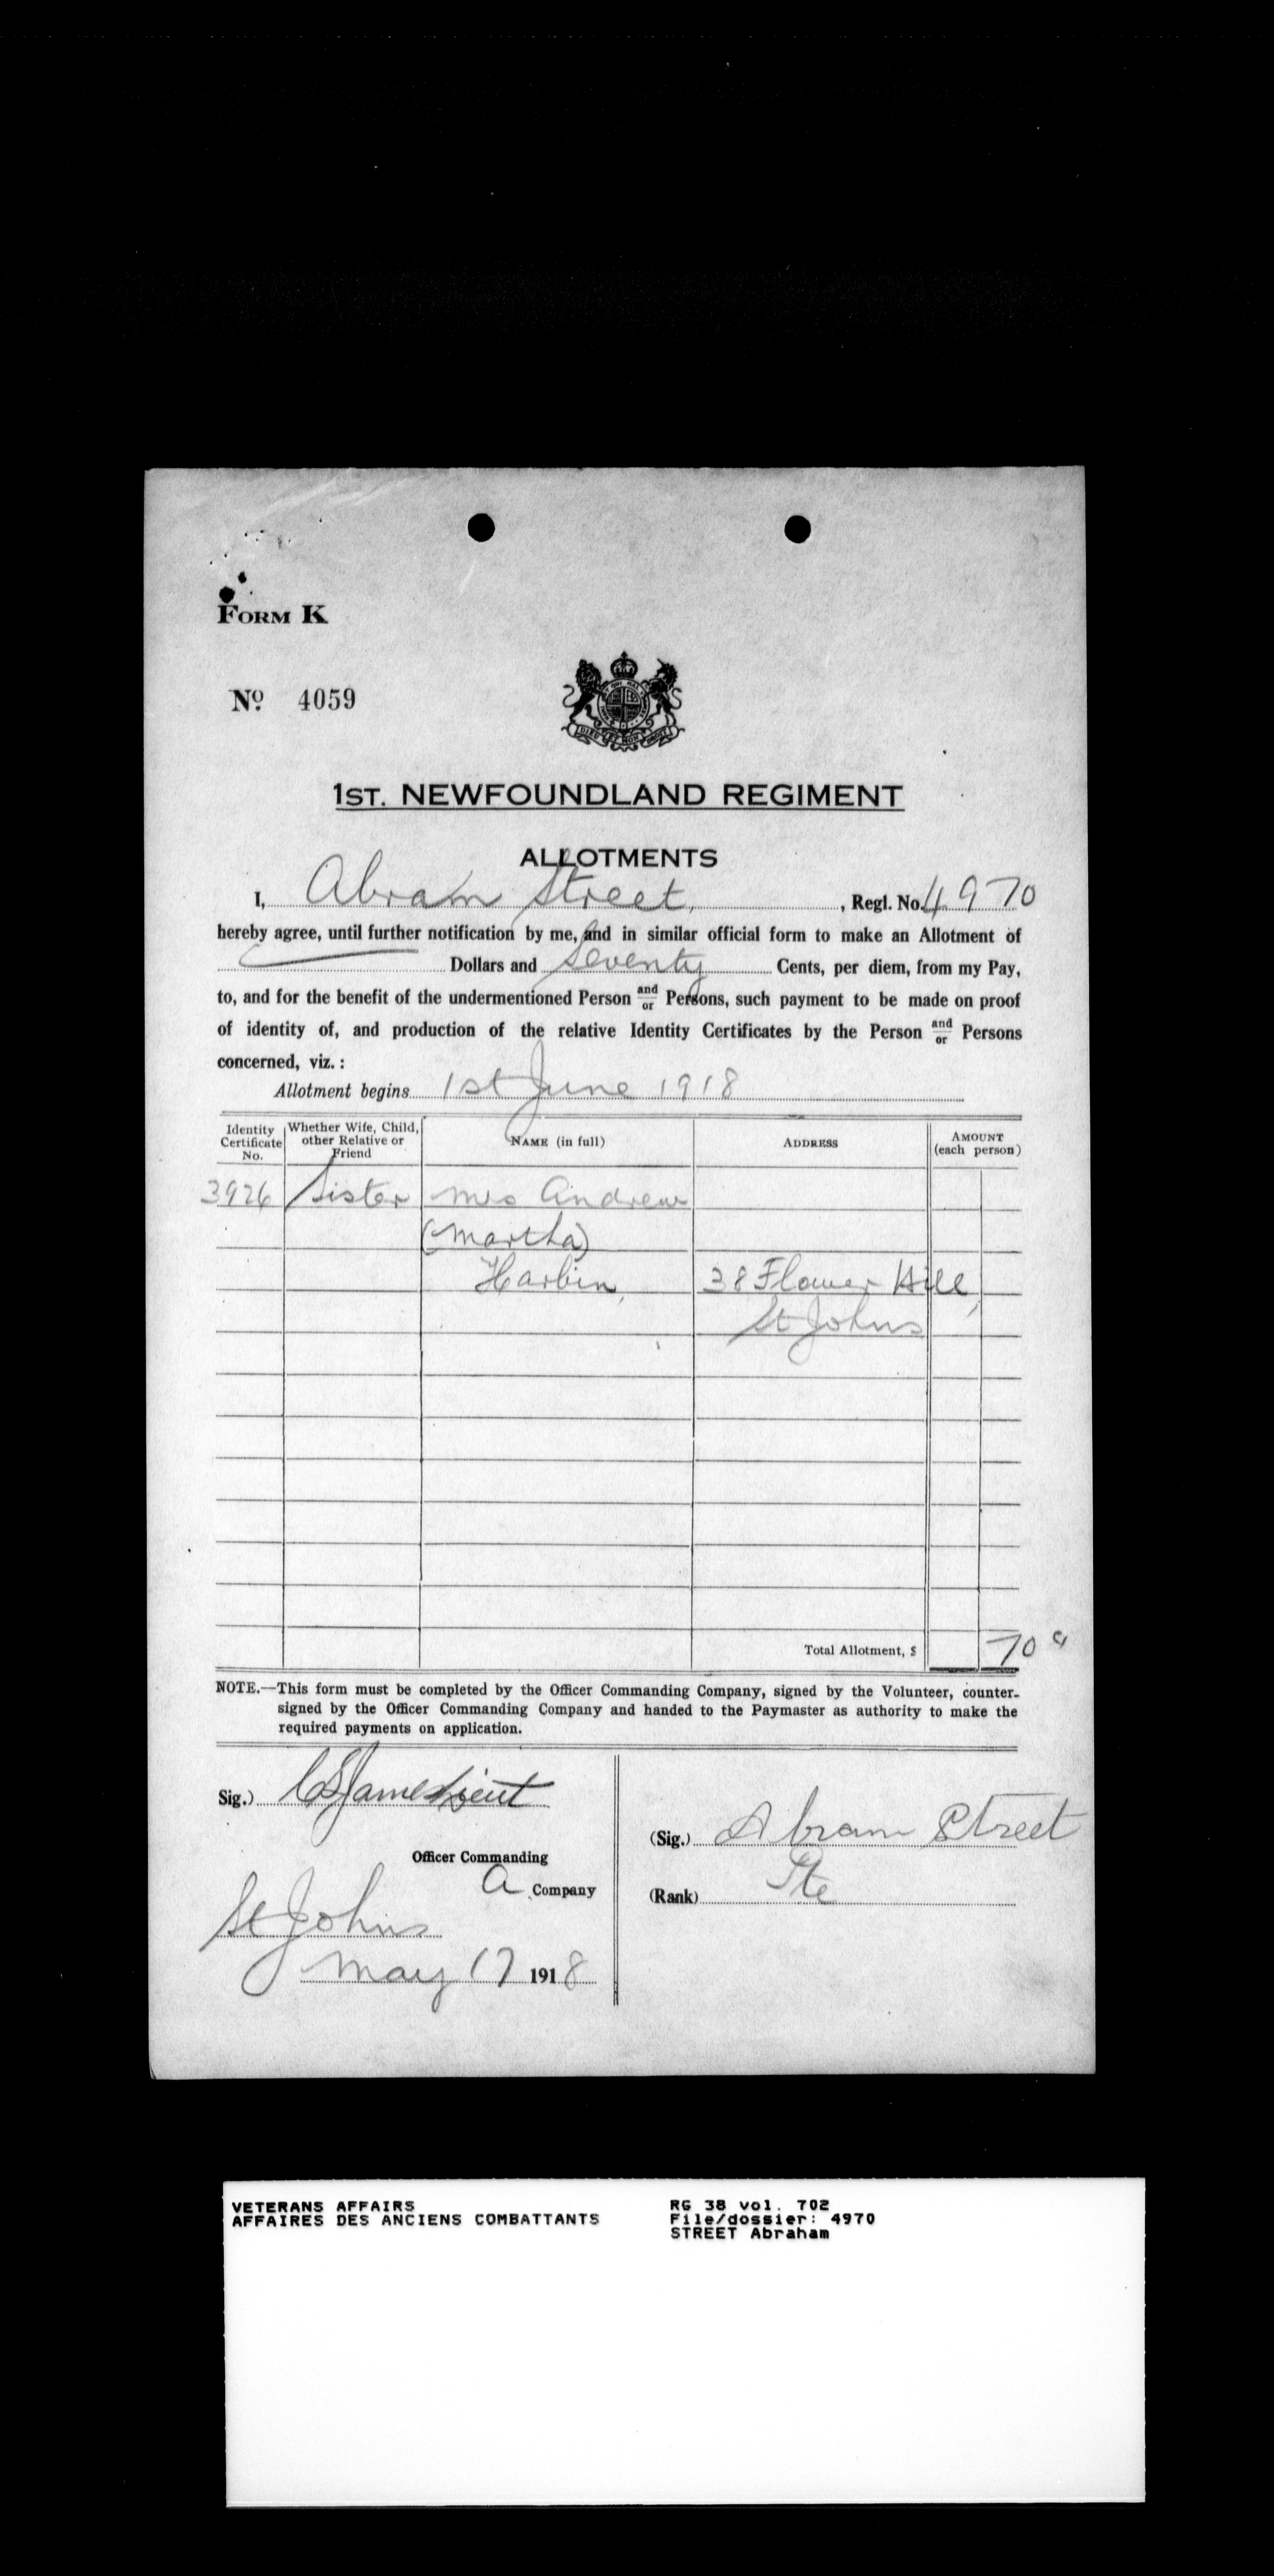 FORM K
No. 4059
1ST. NEWFOUNDLAND REGIMENT
ALLOTMENTS
I, Abram Street, , Regl. No. 4970
hereby agree, until further notification by me, and in similar official form to make an Allotment of
Dollars and Seventy Cents, per diem, from my Pay,
to, and for the benefit of the undermentioned Person and/or Persons, such payment to be made on proof
of identity of, and production of the relative Identity Certificates by the Person and/or Persons
concerned, viz. :
Allotment begins 1st June 1918
Identity Certificate No. Whether Wife, Child, other Relative or Friend NAME (in full) ADDRESS AMOUNT (each person)
3926 Sister Mrs Andrew
(Martha)
Harbin, 38 Flower Hill,
St Johns
Total Allotment, $ 70 c
NOTE.—This form must be completed by the Officer Commanding Company, signed by the Volunteer, counter-
signed by the Officer Commanding Company and handed to the Paymaster as authority to make the
required payments on application.
Sig.) James Lieut
Officer Commanding
A Company
St Johns
May 17 1918
(Sig.) Abram Street
(Rank) Pte
VETERANS AFFAIRS
AFFAIRES DES ANCIENS COMBATTANTS
RG 38 vol. 702
File/dossier: 4970
STREET Abraham